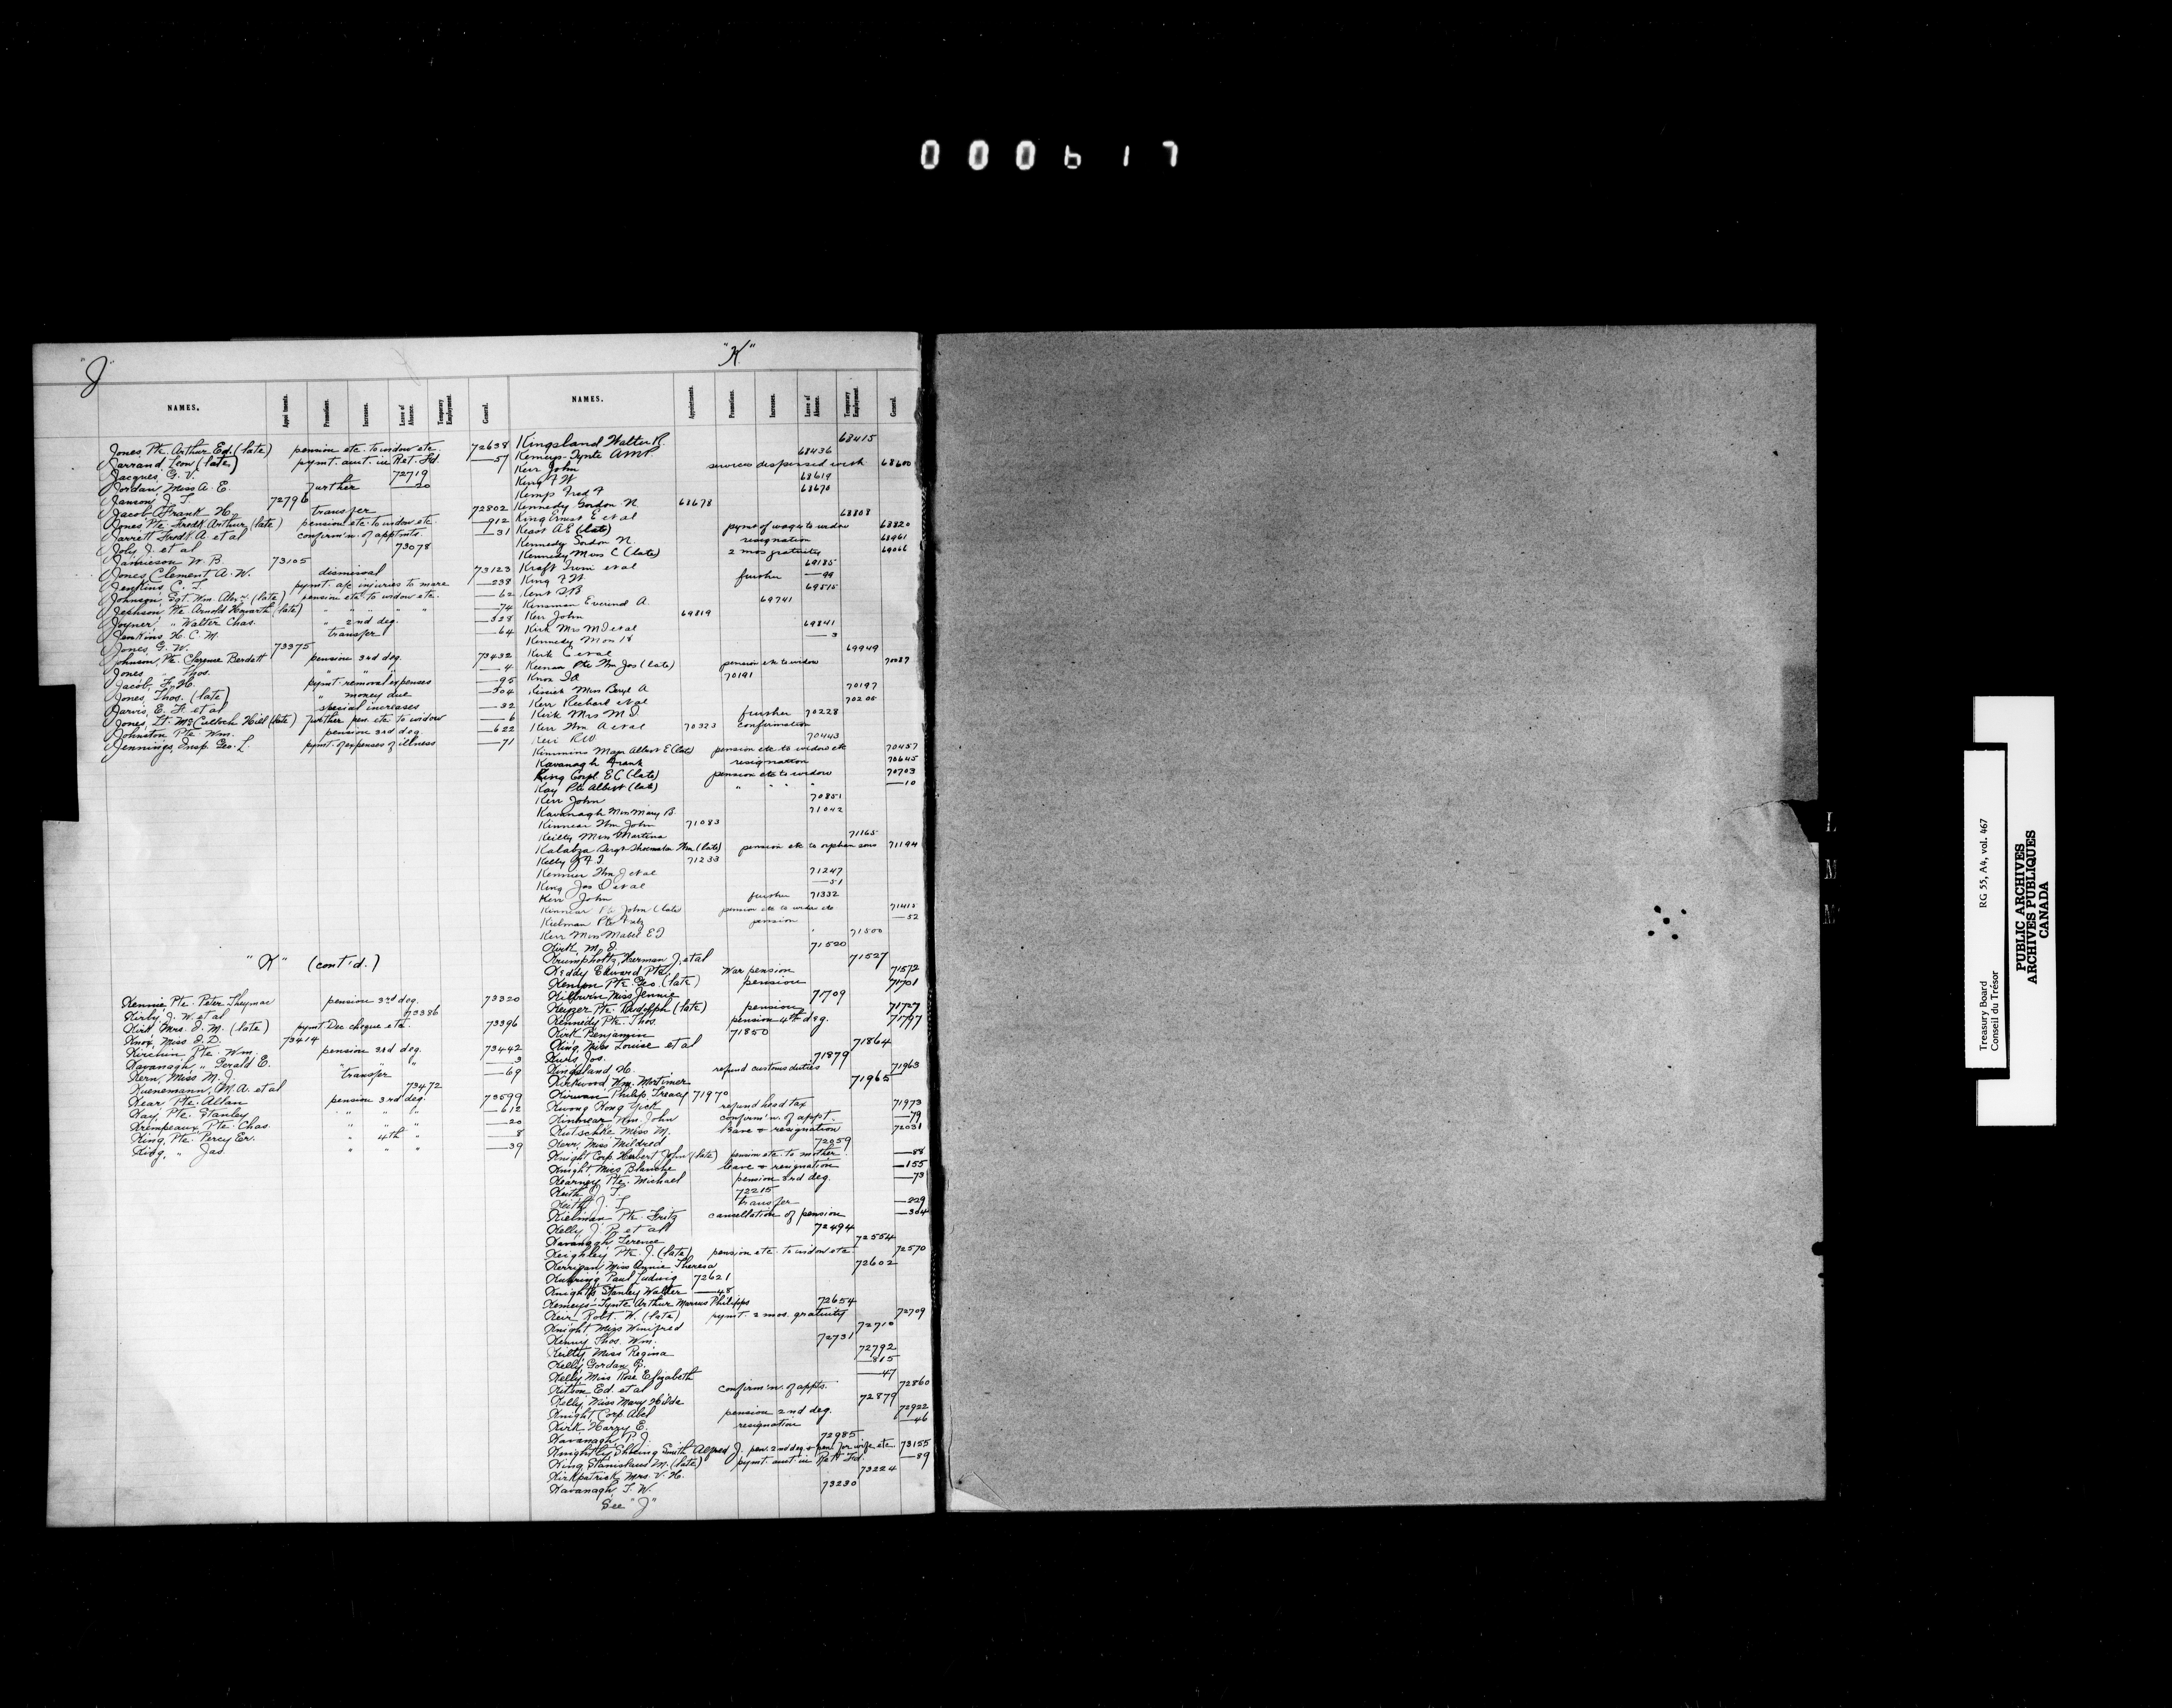 000617
"J"
NAMES. Appointments. Promotions. Increases. Leave of Absence. Temporary Employment. General.
Jones, Pte. Arthur Ed. (late) pension etc. to widow etc. 72638
Jarrand, Leon (late) pymt. amt. in Ret. Fd. —57
Jacques, G. V. 72719
Jordan, Miss A. E. further —20
Janson, J. T. 72796
Jacob, Frank H. transfer 72802
Jones, Pte. Fredk. Arthur (late) pension etc. to widow etc. —912
Jarrett, Fredk. A. et al confirm'n. of appt'mts. —31
Joly, J. et al 73078
Jamieson, W. B. 73105
Jones, Clement A. W. dismissal 73123
Jenkins, C. T. pymt. a/c injuries to mare —238
Johnson, Sgt. Wm. Alex. (late) pension etc. to widow etc. —62
Jephson, Pte. Arnold Howarth (late) " " " " " —74
Joyner, " Walter Chas. " 2nd deg. —328
Jenkins, H. C. M. transfer —64
Jones, G. W. 73375
Johnson, Pte. Clarence Berdett pension 3rd deg. 73432
Jones, " Thos. " " " —4
Jacob, F. H. pymt. removal expenses —95
Jones, Thos. (late) " money due —504
Jarvis, E. F. et al special increases —32
Jones, Lt. McCulloch Hill (late) further pen. etc. to widow —6
Johnston, Pte. Wm. pension 3rd deg. —622
Jennings, Insp. Geo. L. pymt. of expenses of illness —71
"K" (cont'd.)
Kennie, Pte. Peter pension 3rd deg. 73320
Kirby, J. W. et al 73386
Kirk, Mrs. J. M. (late) pymt. Dec. cheque etc. 73396
Knox, Miss J. D. 73414
Kirchin, Pte. Wm. pension 3rd deg. 73442
Kavanagh, " Gerald E. " " " —3
Kern, Miss M. J. transfer —69
Kuenemann, M. A. et al 73472
Kear, Pte. Allan pension 3rd deg. 73599
Kay, Pte. Stanley " " " —612
Krempeaux, Pte. Chas. " " " —20
King, Pte. Percy Er. " 4th " —8
King, " Jas. " " " —39
"K"
NAMES. Appointments. Promotions. Increases. Leave of Absence. Temporary Employment. General.
Kingsland Walter R. 68415
Kemeys-Tynte AMP 68436
Kerr John services dispensed with 68600
King F W 68619
Kemp Fred F 68670
Kennedy Gordon N. 68678
King Ernest E et al 68808
Keays A E (late) pymt of wages to widow 68820
Kennedy Gordon N. resignation 68961
Kennedy Miss C (late) 2 mos gratuity 69066
Kraft Irwin et al 69185
King F W further —99
Kent S B 69515
Kinsman Everind A. 69741
Kerr John 69819
Kirk Mrs M J et al 69841
Kennedy Mrs —3
Kirk C et al 69949
Keenan Pte Wm Jos (late) pension etc to widow 70087
Knox I A 70191
Kissick Miss Beryl A 70197
Kerr Richard et al 70205
Kirk Mrs M J. further 70228
Kerr Wm A et al 70323 confirmation
Keir R W 70443
Kimmins Major Albert E (late) pension etc to widow etc 70457
Kavanagh Frank resignation 70645
King Corpl E C (late) pension etc to widow 70703
Kay Pte Albert (late) " " " " —10
Kerr John 70851
Kavanagh Miss Mary B. 71042
Kinnear Wm John 71083
Keilty Miss Martina 71165
Kalabza Sergt Shoemaker Wm (late) pension etc to orphan sons 71194
Kelly J. F. J. 71233
Kenner Wm J et al 71247
King Jos O et al —51
Kerr John further 71332
Kinnear Pte John (late) pension etc to widow etc 71415
Kielman Pte Fritz pension —52
Kerr Miss Mabel E J 71500
Kirk, M. J. 71520
Krumpholtz, Herman J. et al 71527
Keddy Edward Pte. War pension 71572
Kenyon Pte. Geo. (late) pension 71701
Kilburin Miss Jennie 71709
Keyzer Pte. Rudolph (late) pension 71727
Kennedy Pte. Thos. pension 4th deg. 71797
Kirk, Benjamin 71850
King, Miss Louise et al 71864
Kurs Jos. 71879
Kingsland, H. refund customs duties 71963
Kirkwood, Wm. Mortimer 71965
Kirwan Philip Treacy 71970
Kwong Kong Yick refund head tax 71973
Kinnear, Wm. John confirm'n. of appt. —79
Kutschke Miss M. Leave & resignation 72031
Kerr, Miss Mildred 72059
Knight Corp. Herbert John (late) pension etc. to mother —88
Knight Miss Blanche leave & resignation —155
Kearney, Pte. Michael pension 3rd deg. —73
Keith, J. T. 72215
Keith, J. T. transfer —229
Kielman Pte. Fritz cancellation of pension —304
Kelly, J. P. et al 72494
Kavanagh Terence 72554
Keighley Pte. J. (late) pension etc. to widow etc 72570
Kerrigan, Miss Annie Theresa 72602
Kuhring Paul Ludwig 72621
Knights, Stanley Walter —48
Kemeys-Tynte Arthur Marcus Philipps 72654
Keir Robt. W. (late) pymt. 2 mos. gratuity 72709
Knight Miss Winifred 72710
Kenny, Thos. Wm. 72731
Kielty Miss Regina 72792
Kelly Gordon G. —815
Kelly, Miss Rose Elizabeth —47
Kitson Ed. et al confirm'n. of appts. 72860
Kelly, Miss Mary Hilda 72879
Knight Corp. Abel pension 2nd deg. 72922
Kirk, Harry E. resignation —46
Kavanagh, P. J. 72985
Knightly Shoeing Smith Alfred J. pen. 2nd deg. & pen. for wife etc. 73155
King, Stanislaus M. (late) pymt. amt. in Ret. Fd. —89
Kirkpatrick, Mrs. V. H. 73224
Kavanagh, T. W. 73230
See "J"
Treasury Board RG 55, A4, vol. 467
Conseil du Trésor
PUBLIC ARCHIVES
ARCHIVES PUBLIQUES
CANADA